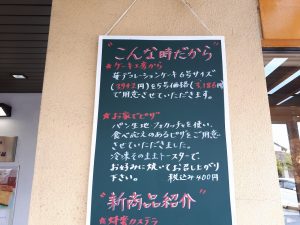 "こんな時だから"
★ケーキ工房から
苺デコレーションケーキ6号サイズ
(3942円)を5号価格(3,186円)
で用意させていただきます。
★お家でピザ
パン生地フォカッチャを使い、
食べ応えのあるピザをご用意
させていただきました。
冷凍そのままトースターで
お好みに焼いてお召し上がり
下さい。 税込み400円
"新商品紹介"
★蜂蜜カステラ